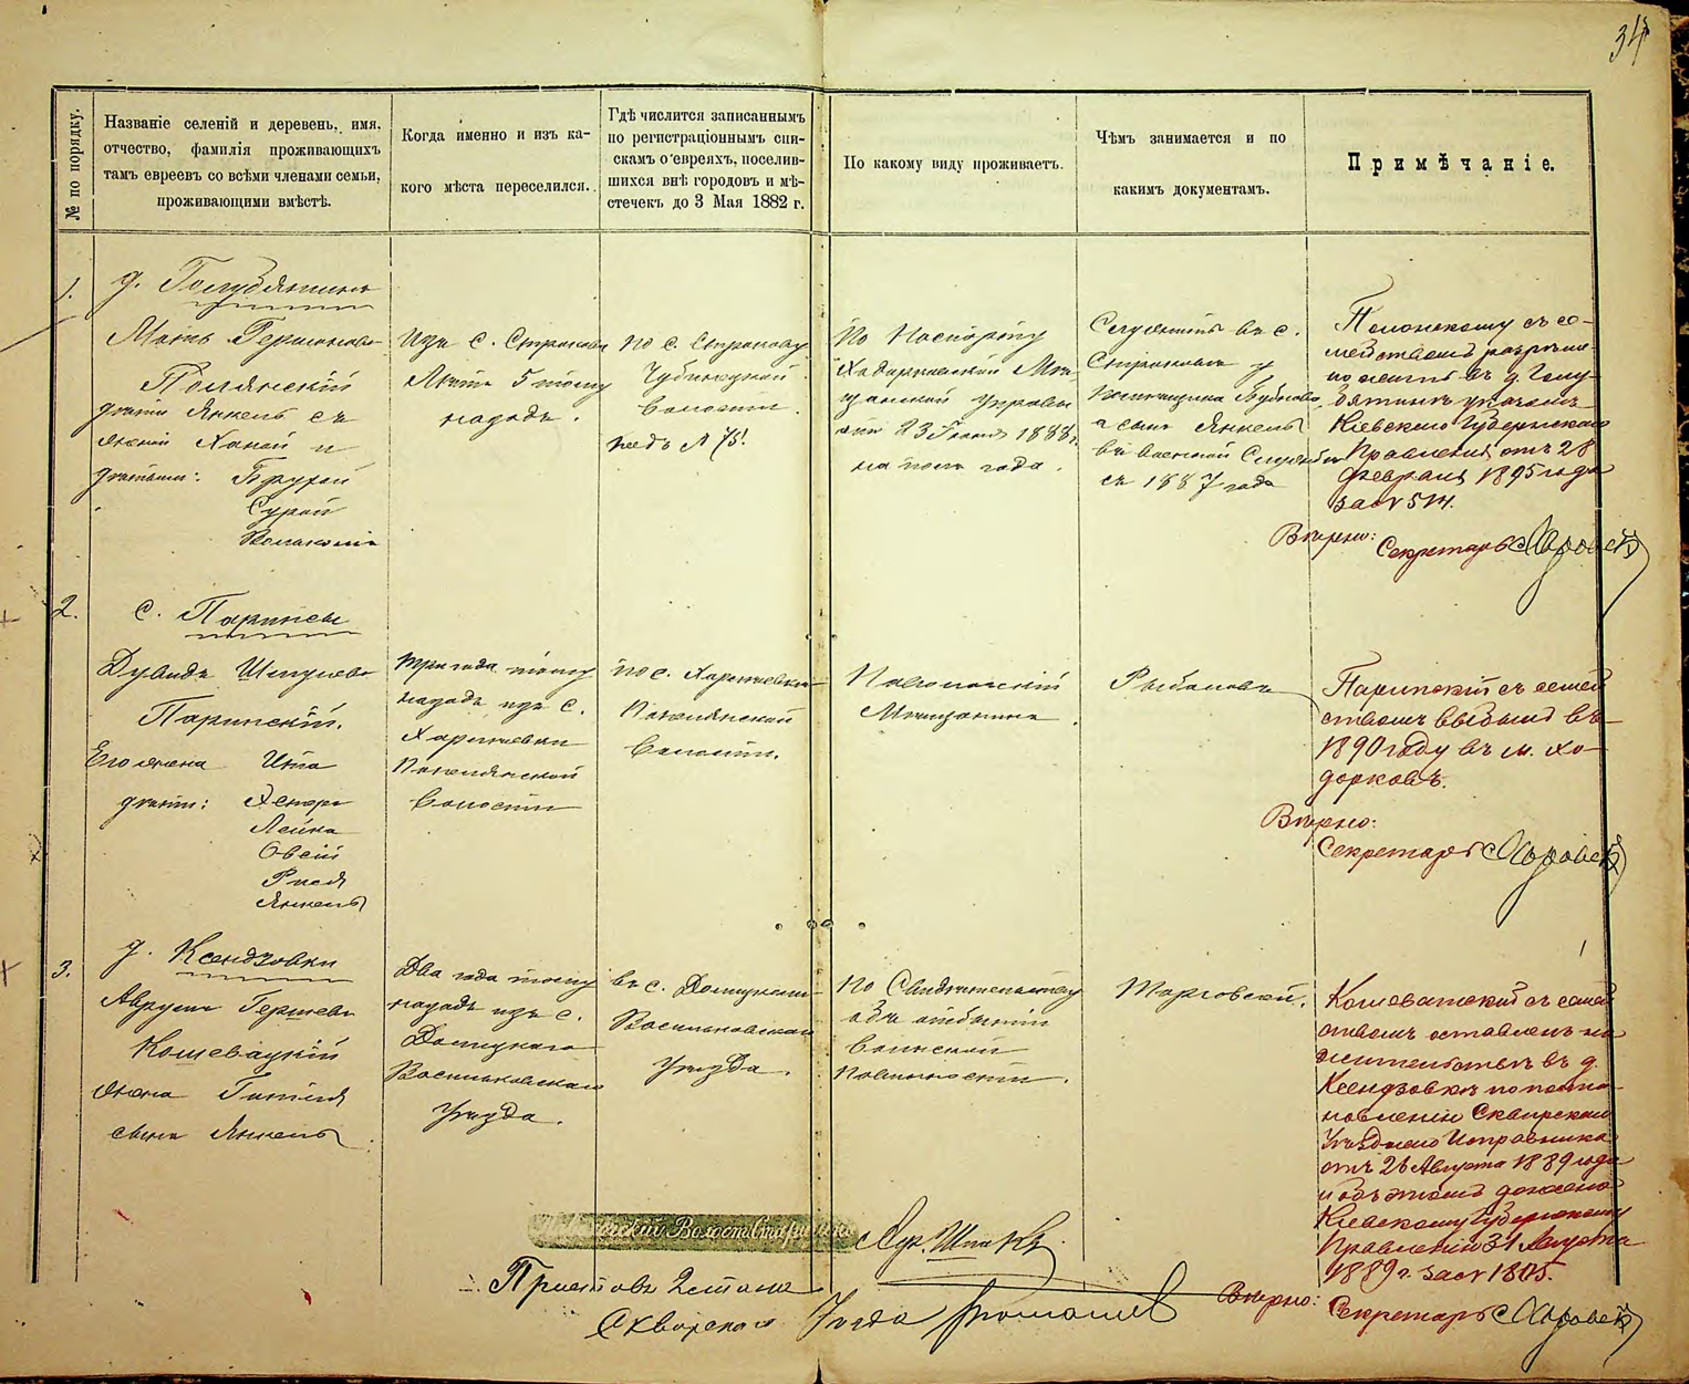 34
№ по порядку.
Названіе селеній и деревень, имя,
отчество, фамилія проживающихъ
тамъ евреевъ со всѣми членами семьи,
проживающими вмѣстѣ.
Когда именно и изъ ка-
кого мѣста переселился.
Гдѣ числится записаннымъ
по регистраціоннымъ спи-
скамъ о евреяхъ, поселив-
шихся внѣ городовъ и мѣ-
стечекъ до 3 Мая 1882 г.
По какому виду проживаетъ.
Чѣмъ занимается и по
какимъ документамъ.
Примѣчаніе.
1.
д. Голубятинъ
Гершоновъ
Полянскій
дѣти Янкель съ
женой Ханой и
дѣтьми:
Сурой
Изъ с. Строкова
Лѣтъ 5 тому
назадъ.
По с. Строкову
волости.
подъ № 75.
По паспорту
Ходорковской Мѣ-
щанской Управы
отъ 23 1888 г.
на полъ года.
Служитъ въ с.
Строковѣ у
а сынъ Янкель
въ военной Службѣ
съ 1887 года
Полонскому съ се-
мействомъ разрѣше-
но жить въ д. Голу-
бятинѣ указомъ
Кіевскаго Губернскаго
Правленія отъ 28
Февраля 1895 года
за № 514.
Вѣрно:
Секретарь
2.
с. Паринсы
Дувидъ Шмулевъ
Паринскій.
Его жена Ита
дѣти:
Лейка
Овсій
Рися
Янкель
Три года тому
назадъ изъ с.
Харлѣевки
волости
по с. Харлѣевки
волости.
Паволочскій
Мѣщанинъ.
Рыболовъ
Паринскій съ семей
ствомъ выбылъ въ
1890 году въ м. Хо-
дорковъ.
Вѣрно:
Секретарь
3.
д. Ксендзовки
Аврумъ Гершевъ
Кошевацкій
жена Гитля
сынъ Янкель
Два года тому
назадъ изъ с.
Васильковскаго
Уѣзда.
въ с.
Васильковскаго
Уѣзда.
По Свидѣтельству
объ отбытіи
воинской
повинности.
Торговлей.
Кошеватскій съ семей
ствомъ оставленъ на
жительствѣ въ д.
Ксендзовкѣ по поста-
новленію Сквирскаго
Уѣзднаго Исправника
отъ 26 Августа 1889 года
и объ этомъ донесено
Кіевскому Губернскому
Правленію 31 Августа
1889 г. за № 1805.
Вѣрно:
Секретарь
Волостн
Приставъ 2 стана
Сквирскаго Уѣзда